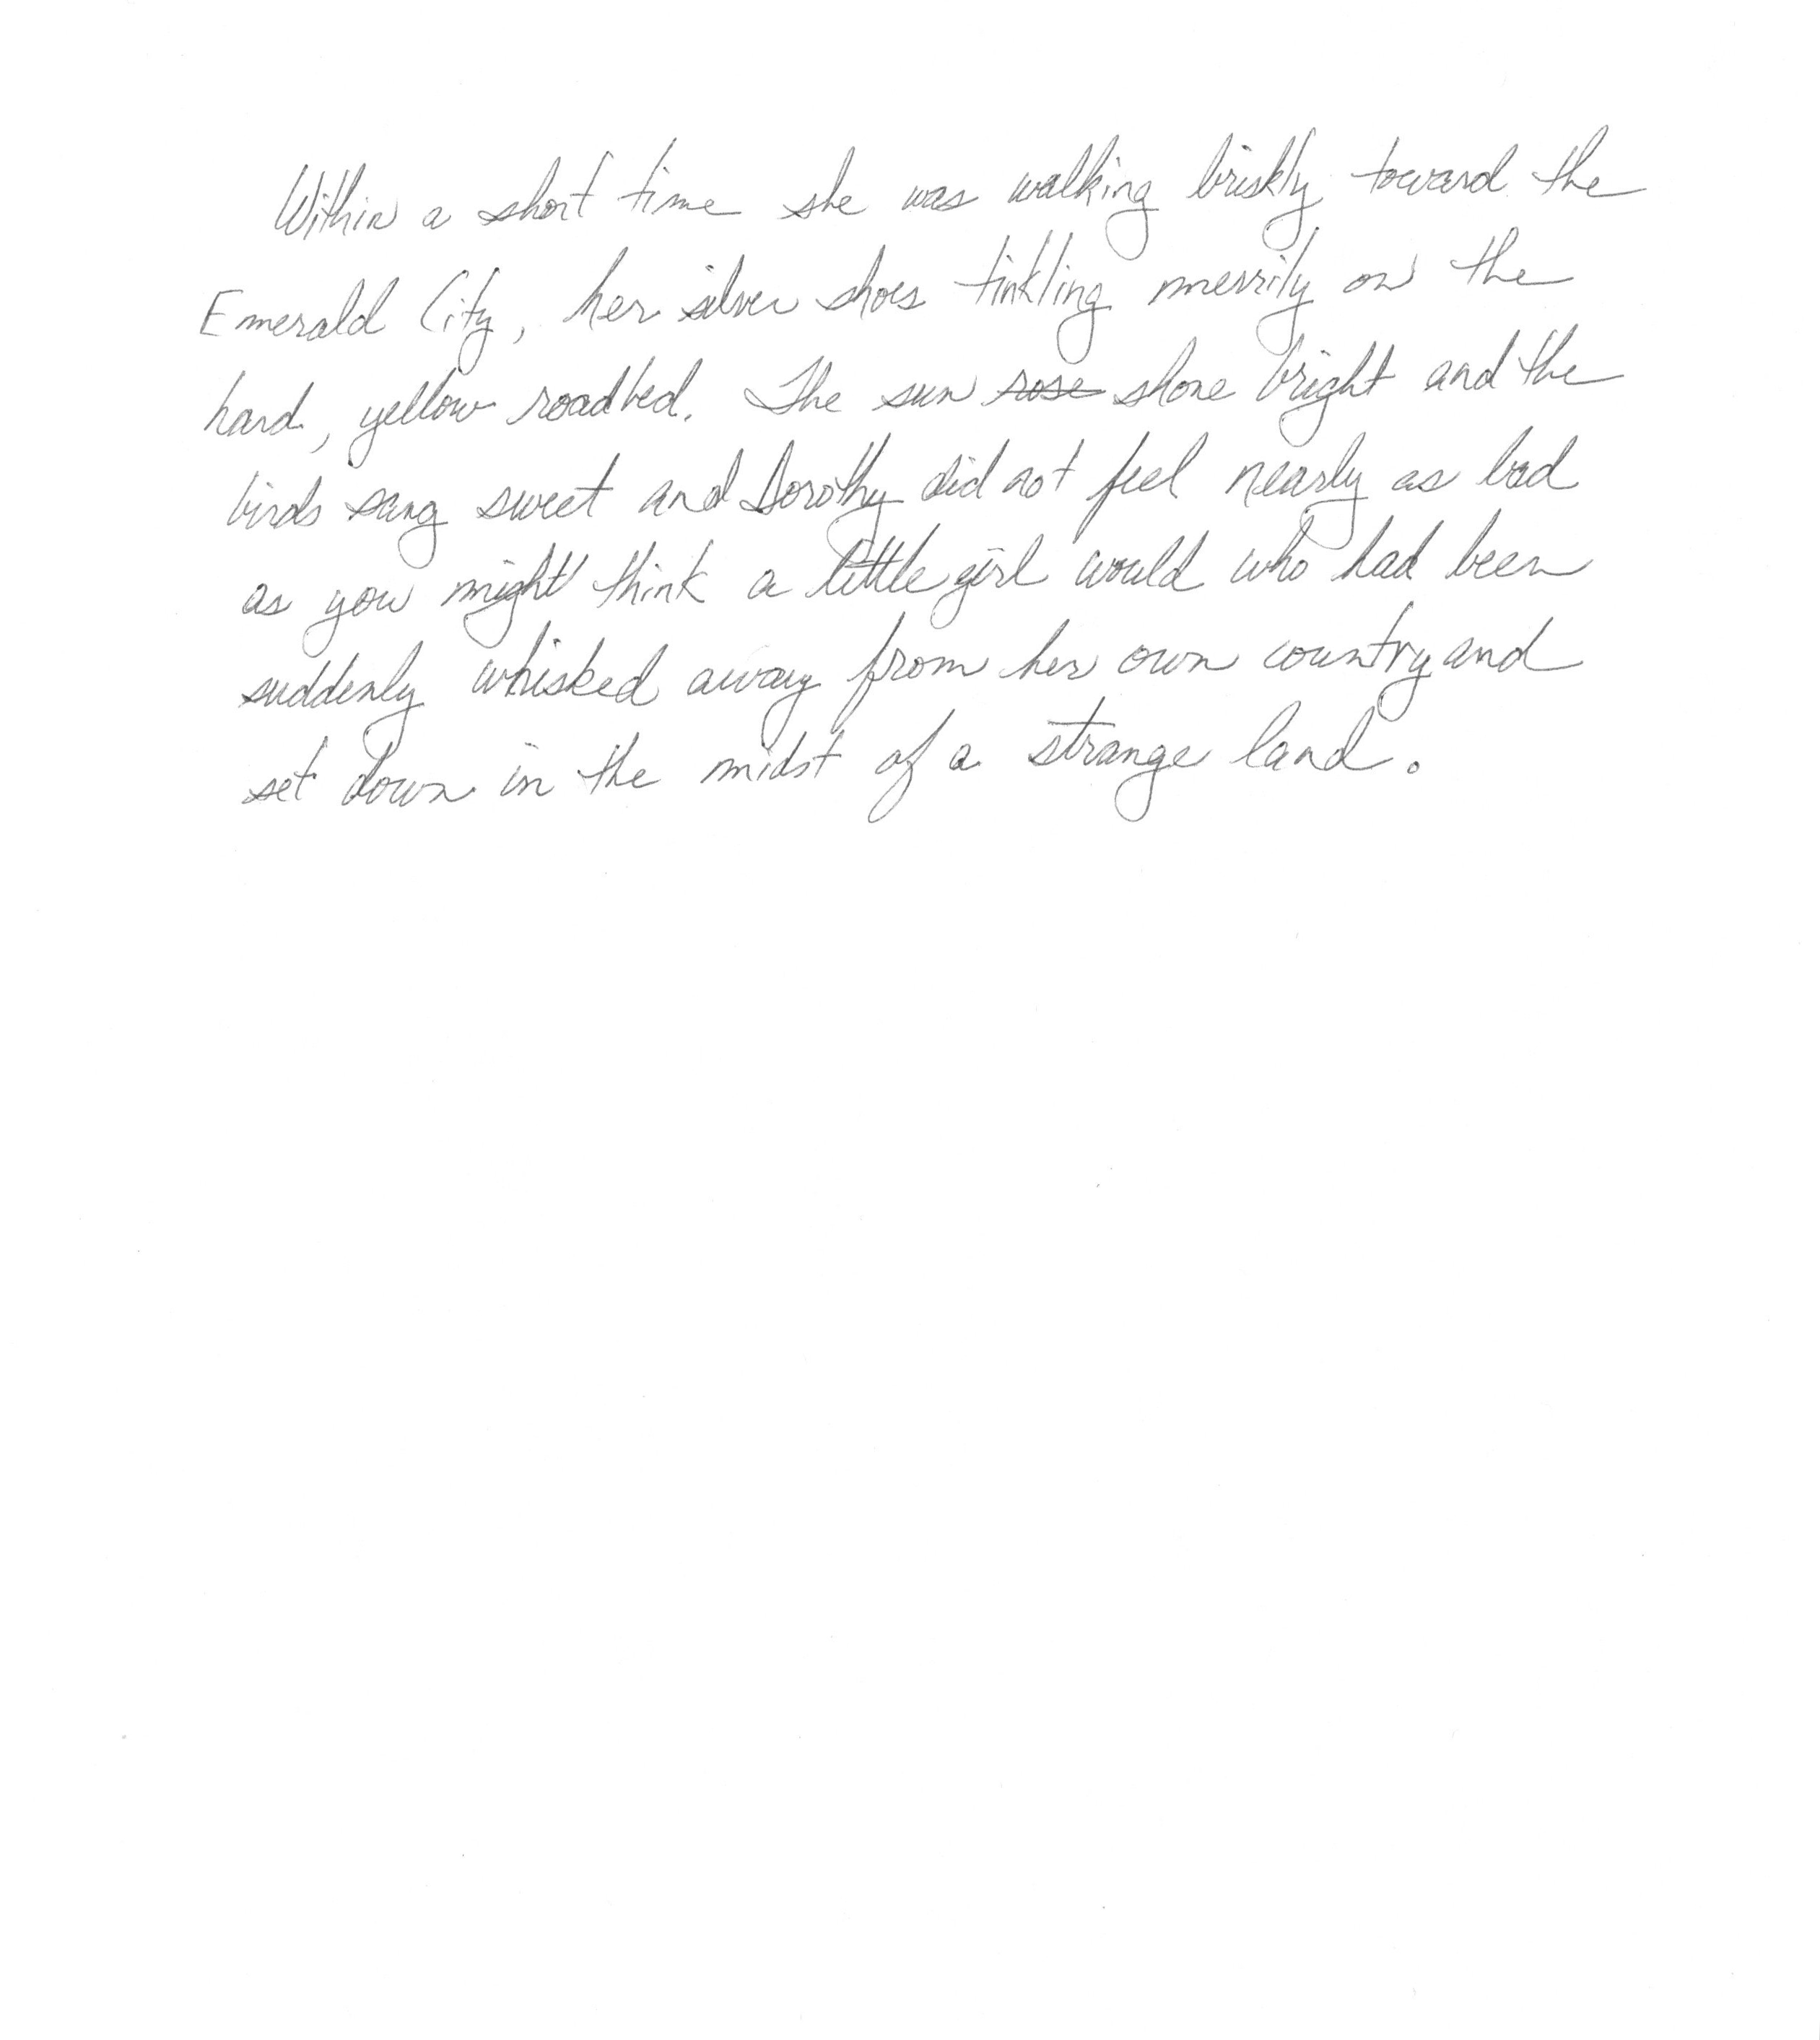 Within a short time she was walking briskly toward the
Emerald City, her silver shoes tinkling merrily on the
hard, yellow roadbed. The sun rose shone bright and the
birds sang sweet and Dorothy did not feel nearly as bad
as you might think a little girl would who had been
suddenly whisked away from her own country and
set down in the midst of a strange land.